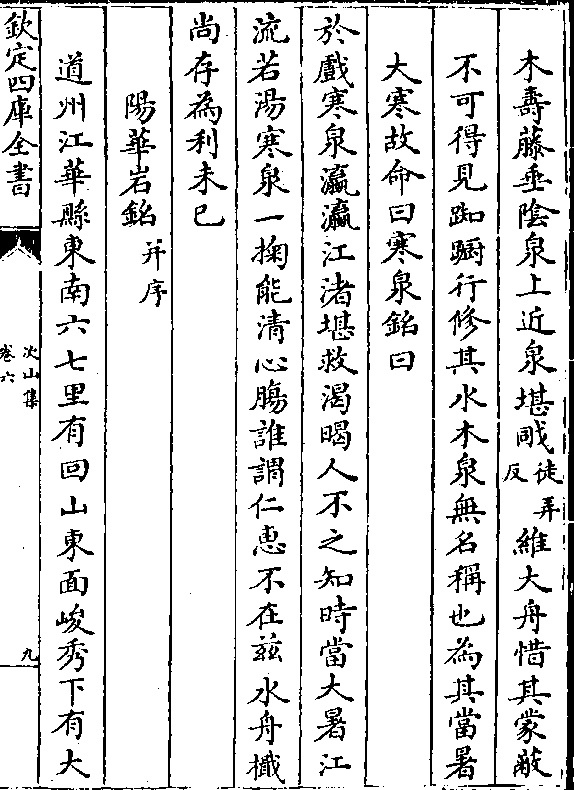 木壽藤垂陰泉上近泉堪𢧵徒弄反維大舟惜其蒙蔽
不可得見踟躕行修其水木泉無名稱也為其當暑
大寒故命曰寒泉銘曰
於戲寒泉瀛瀛江渚堪救渴暍人不之知時當大暑江
流若湯寒泉一掬能清心腸誰謂仁惠不在兹水舟檝
尚存為利未已
陽華岩銘并序
道州江華縣東南六七里有回山東面峻秀下有大
欽定四庫全書
次山集
卷六
九